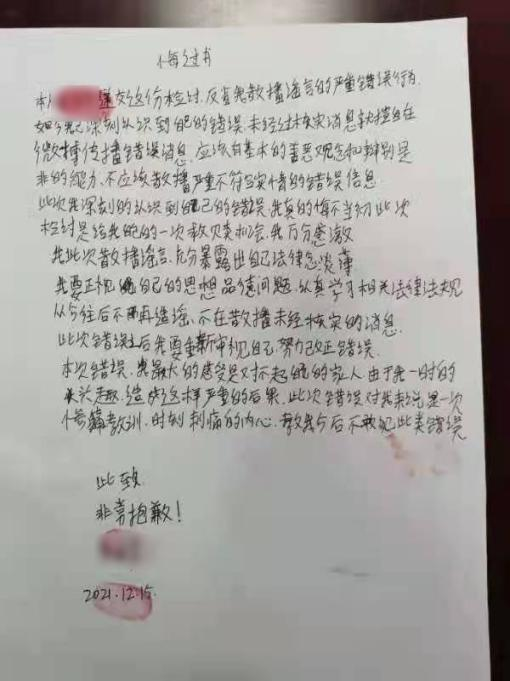 悔过书
本人 递交这份检讨,反省我散播谣言的严重错误行为.
如今我已深刻认识到自己的错误,未经过核实消息就擅自在
微博传播错误消息,应该有基本的善恶观念和辩别是
非的能力,不应该散播严重不符合实情的错误信息
此次我深刻的认识到自己的错误,我真的悔不当初此次
检讨是给我自己的一次教训和机会,我万分感激
我此次散播谣言,充分暴露出自己法律意识淡薄
我要正视自己的思想品德问题,认真学习相关法律法规
从今往后不再造谣,不在散播未经核实的消息.
此次错误之后我要重新审视自己,努力改正错误.
本次错误,我最大的感受是对不起自己的家人由于我一时的
兴趣,造成这样严重的后果,此次错误对我来说是一次
教训,时刻刺痛的内心,教我今后不敢犯此类错误
此致
非常抱歉!
2021.12.15.